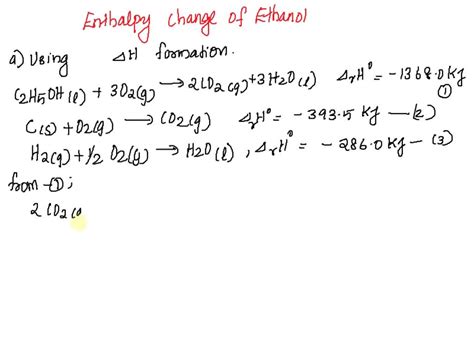 Enthalpy Change of Ethanol
a) Using ΔH formation.
C2H5OH(l) + 3O2(g) → 2CO2(g) + 3H2O(l) ΔrH° = -1368.0KJ ①
C(s) + O2(g) → CO2(g) ΔrH° = -393.5 KJ —(2)
H2(g) + 1/2 O2(g) → H2O(l), ΔrH° = -286.0 KJ —(3)
from -①;
2 CO2(